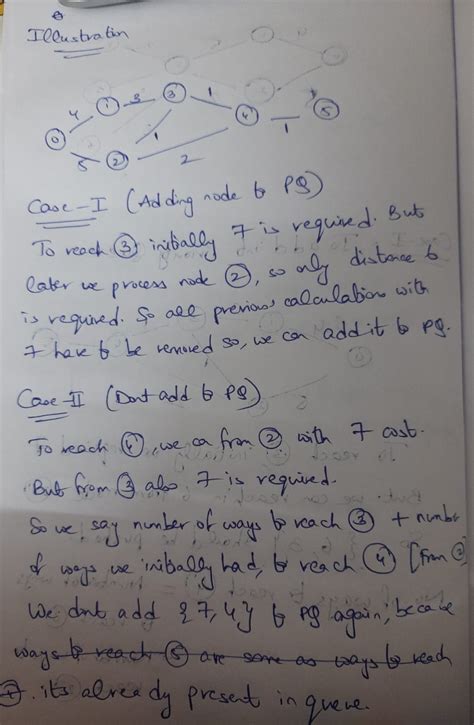 Illustration
4 1 3 3 1 4 1 5
0 5 2 1 2
Case-I (Adding node to PQ)
To reach 3 initially 7 is required. But
later we process node 2, so only distance 6
is required. So all previous calculations with
7 have to be removed so, we can add it to PQ.
Case-II (Dont add to PQ)
To reach 4, we ca from 2 with 7 cost.
But from 3 also 7 is required.
So we say number of ways to reach 3 + number
of ways we initially had, to reach 4 [from 2]
We dnt add {7,4} to PQ again, because
ways to reach 5 are same as ways to reach
4. its already present in queue.